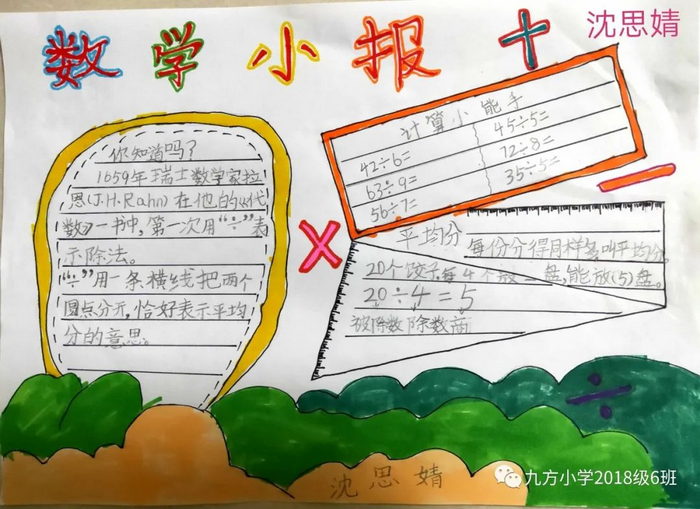 数学小报
沈思婧
你知道吗?
1659年瑞士数学家拉
恩(J.H.Rahn)在他的《代
数》一书中,第一次用“÷”表
示除法。
“÷”用一条横线把两个
圆点分开,恰好表示平均
分的意思。
计算小能手
42÷6=
63÷9=
56÷7=
45÷5=
72÷8=
35÷5=
平均分
每份分得同样多叫平均分。
20个饺子,每4个放一盘,能放(5)盘。
20÷4=5
被除数 除数 商
+
−
×
÷
沈思婧
九方小学2018级6班